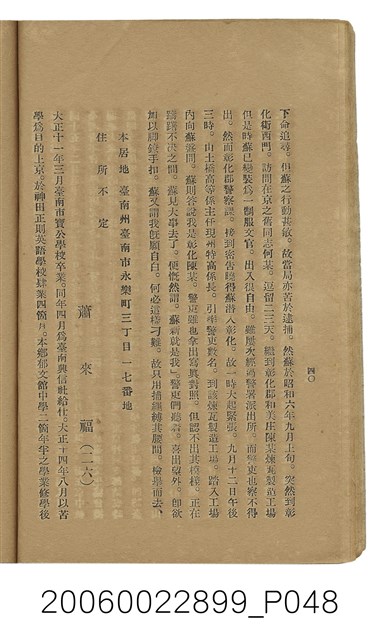 四〇
下命追尋。但蘇之行動甚敏。故當局亦苦於逮捕。然蘇於昭和六年九月上旬。突然到彰
化街西門。訪問在京之舊同志何某。逗留二三天。繼到彰化郡和美庄陳某煉瓦製造工場
但是時蘇已變裝為一個服文官。出入很自由。雖屢次經過警署派出所。而警吏也察不得
出。然而彰化郡警察課。接到密告曉得蘇潛入彰化。故一時大起緊張。九月十二日午後
三時。由土橋高等係主任現州特高係長。引率警吏數名。到該煉瓦製造工場。踏入工場
內向蘇盤問。蘇則答謂我是彰化陳某。警吏雖也拿出寫眞對照。但認不出其模樣。正在
躊躇不決之間。蘇見大事去了。便慨然謂。蘇新就是我、警吏們聽着。喜出望外。即欲
加以腳鐐手扣。蘇又謂我既願自白。何必這樣刁難。故只用捕繩縛其腰間。檢舉而去、
本居地 臺南州臺南市永樂町三丁目一七番地
住所不定
蕭來福(二六)
大正十一年三月臺南市寶公學校卒業。同年四月為臺南興信社給仕。大正十四年八月以苦
學為目的上京。於神田正則英語學校肄業四箇月。本鄉郁文館中學二箇年半之學業修學後
20060022899_P048